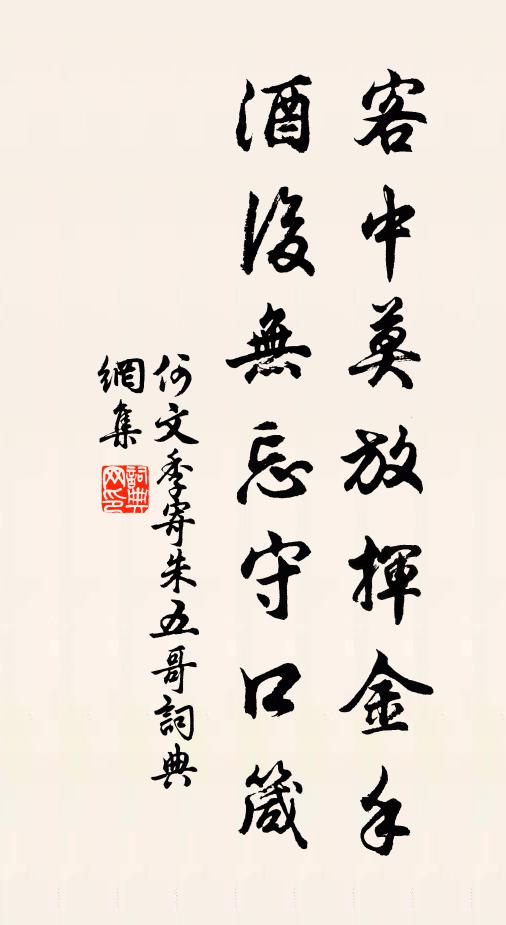 客中莫放揮金手
酒後無忘守口箴
何文季寄朱五哥詞典
網集
詞典
网印